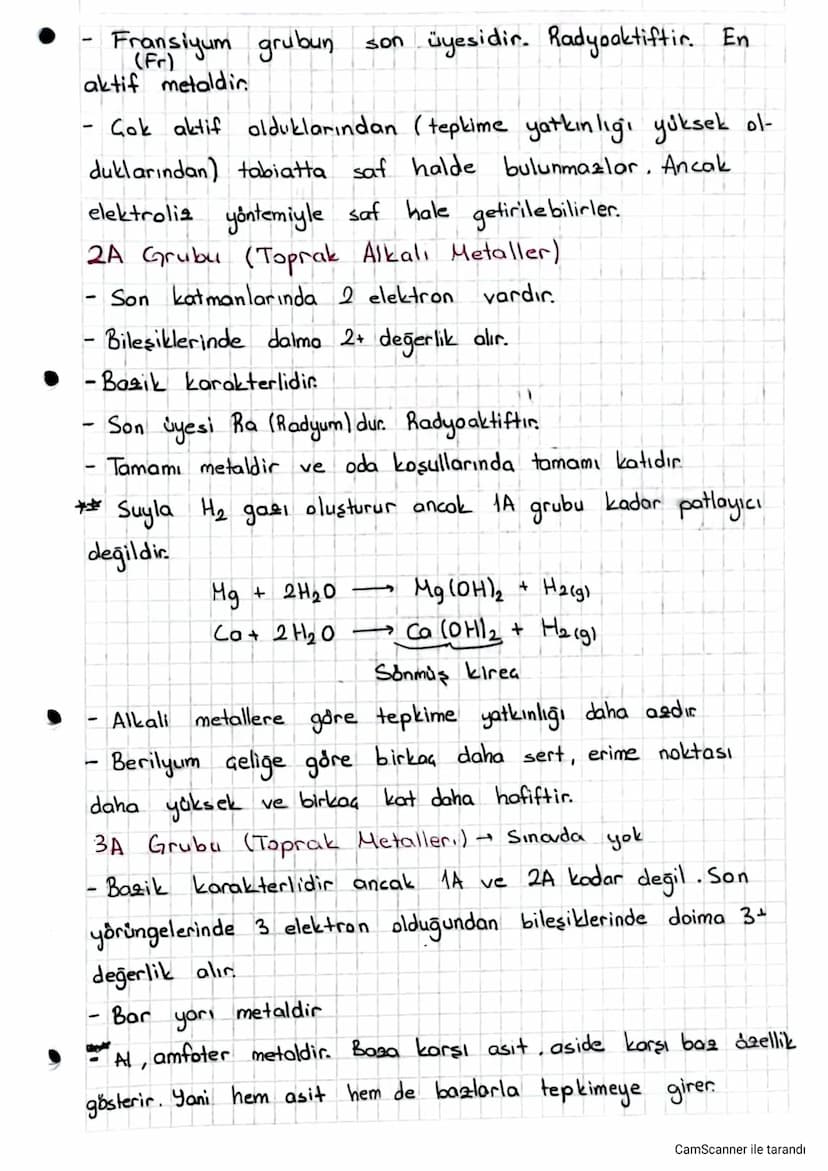 - Fransiyum grubun son üyesidir. Radyoaktiftir. En
(Fr)
aktif metaldir.
- Çok aktif olduklarından (tepkime yatkınlığı yüksek ol-
duklarından) tabiatta saf halde bulunmazlar. Ancak
elektroliz yöntemiyle saf hale getirilebilirler.
2A Grubu (Toprak Alkali Metaller)
- Son katmanlarında 2 elektron vardır.
- Bileşiklerinde daima 2+ değerlik alır.
- Bazik karakterlidir.
- Son üyesi Ra (Radyum)dur. Radyoaktiftir.
- Tamamı metaldir ve oda koşullarında tamamı katıdır.
** Suyla H₂ gazı oluşturur ancak 1A grubu kadar patlayıcı
değildir.
Mg + 2H₂O → Mg(OH)₂ + H₂(g)
Ca + 2H₂O → Ca(OH)₂ + H₂(g)
Sönmüş kireç
- Alkali metallere göre tepkime yatkınlığı daha azdır
- Berilyum çeliğe göre birkaç daha sert, erime noktası
daha yüksek ve birkaç kat daha hafiftir.
3A Grubu (Toprak Metalleri) → Sınavda yok
- Bazik karakterlidir ancak 1A ve 2A kadar değil. Son
yörüngelerinde 3 elektron olduğundan bileşiklerinde daima 3+
değerlik alır.
- Bor yarı metaldir
- Al, amfoter metaldir. Baza karşı asit, aside karşı baz özellik
gösterir. Yani hem asit hem de bazlarla tepkimeye girer.
CamScanner ile tarandı